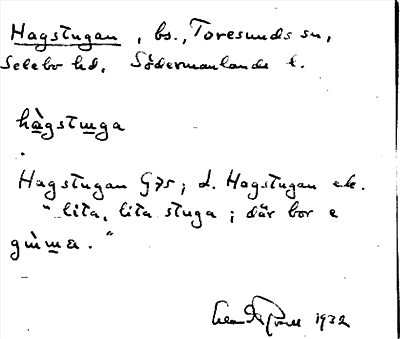 Hagstugan, bs., Toresunds sn,
Selebo hd, Södermanlands l.
hàgstuga
Hagstugan G75; d. Hagstugan ek.
"lita, lita stuga; där bor e
gùmma."
1932